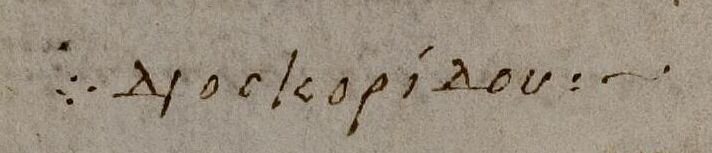 ⁘ Διοσκορίδου :~